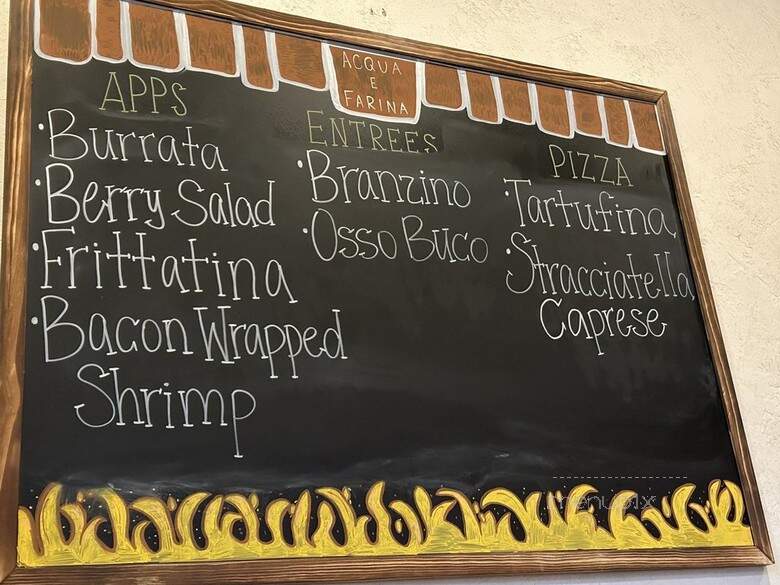 ACQUA
E
FARINA
APPS
·Burrata
·Berry Salad
·Frittatina
·Bacon Wrapped
Shrimp
ENTREES
·Branzino
·Osso Buco
PIZZA
·Tartufina
·Stracciatella
Caprese
menupix